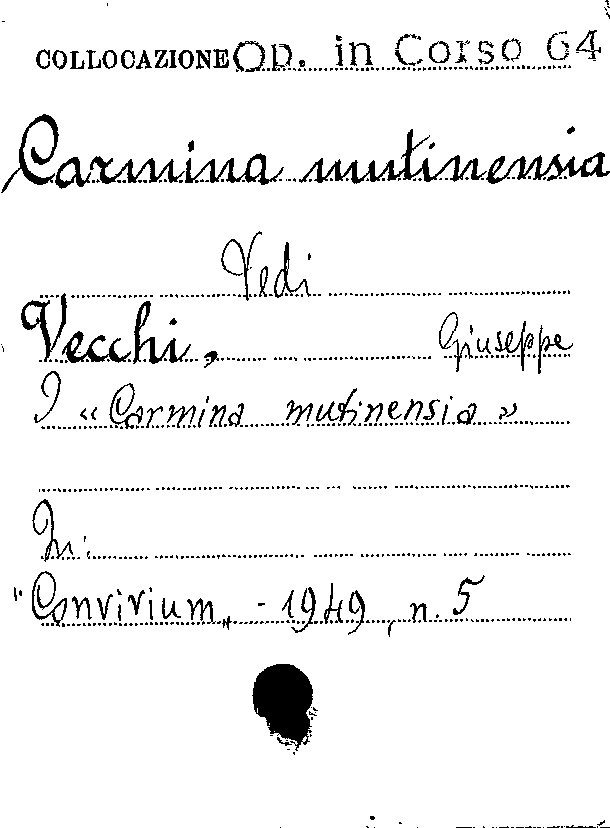 COLLOCAZIONE Op. in Corso 64
Carmina mutinensia
Vedi
Vecchi, Giuseppe
I «Carmina mutinensia»
In:
"Convivium„ - 1949, n. 5